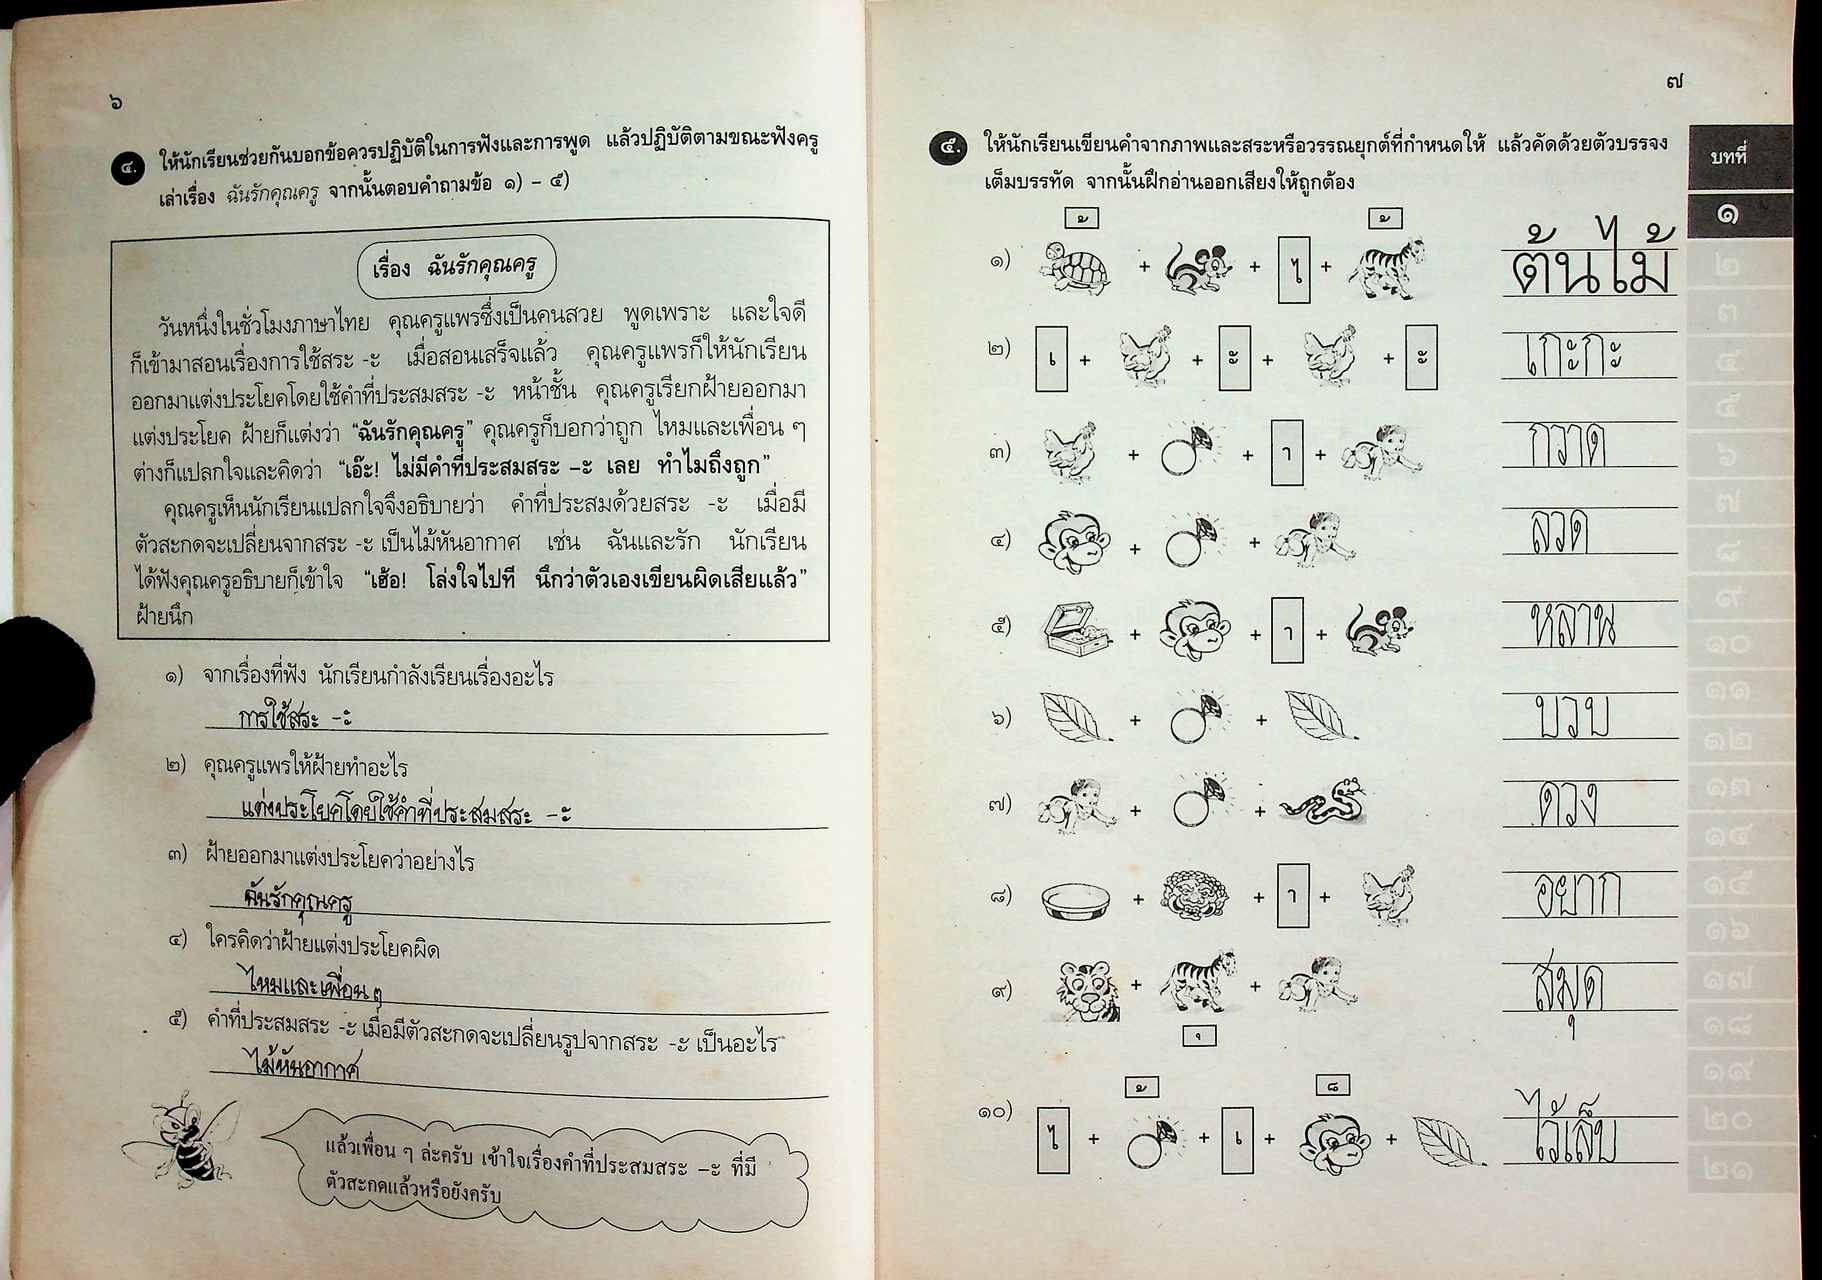 ๖
๔. ให้นักเรียนช่วยกันบอกข้อควรปฏิบัติในการฟังและการพูด แล้วปฏิบัติตามขณะฟังครู
เล่าเรื่อง ฉันรักคุณครู จากนั้นตอบคำถามข้อ ๑) – ๕)
เรื่อง ฉันรักคุณครู
วันหนึ่งในชั่วโมงภาษาไทย คุณครูแพรซึ่งเป็นคนสวย พูดเพราะ และใจดี
ก็เข้ามาสอนเรื่องการใช้สระ -ะ เมื่อสอนเสร็จแล้ว คุณครูแพรก็ให้นักเรียน
ออกมาแต่งประโยคโดยใช้คำที่ประสมสระ -ะ หน้าชั้น คุณครูเรียกฝ้ายออกมา
แต่งประโยค ฝ้ายก็แต่งว่า “ฉันรักคุณครู” คุณครูก็บอกว่าถูก ไหมและเพื่อน ๆ
ต่างก็แปลกใจและคิดว่า “เอ๊ะ! ไม่มีคำที่ประสมสระ –ะ เลย ทำไมถึงถูก”
คุณครูเห็นนักเรียนแปลกใจจึงอธิบายว่า คำที่ประสมด้วยสระ -ะ เมื่อมี
ตัวสะกดจะเปลี่ยนจากสระ -ะ เป็นไม้หันอากาศ เช่น ฉันและรัก นักเรียน
ได้ฟังคุณครูอธิบายก็เข้าใจ “เฮ้อ! โล่งใจไปที นึกว่าตัวเองเขียนผิดเสียแล้ว”
ฝ้ายนึก
๑) จากเรื่องที่ฟัง นักเรียนกำลังเรียนเรื่องอะไร
การใช้สระ -ะ
๒) คุณครูแพรให้ฝ้ายทำอะไร
แต่งประโยคโดยใช้คำที่ประสมสระ -ะ
๓) ฝ้ายออกมาแต่งประโยคว่าอย่างไร
ฉันรักคุณครู
๔) ใครคิดว่าฝ้ายแต่งประโยคผิด
ไหมและเพื่อน ๆ
๕) คำที่ประสมสระ -ะ เมื่อมีตัวสะกดจะเปลี่ยนรูปจากสระ -ะ เป็นอะไร
ไม้หันอากาศ
แล้วเพื่อน ๆ ล่ะครับ เข้าใจเรื่องคำที่ประสมสระ –ะ ที่มี
ตัวสะกดแล้วหรือยังครับ
๗
๕. ให้นักเรียนเขียนคำจากภาพและสระหรือวรรณยุกต์ที่กำหนดให้ แล้วคัดด้วยตัวบรรจง
เต็มบรรทัด จากนั้นฝึกอ่านออกเสียงให้ถูกต้อง
้ ้
๑) + + ไ + ต้นไม้
๒) เ + + ะ + + ะ เกะกะ
๓) + + า + กวาด
๔) + + ลวด
๕) + + า + หลาน
๖) + + บวบ
๗) + + ดวง
๘) + + า + อยาก
๙) + + สมุด
ุ
้ ็
๑๐) ไ + + เ + + ไว้เล็บ
บทที่
๑
๒
๓
๔
๕
๖
๗
๘
๙
๑๐
๑๑
๑๒
๑๓
๑๔
๑๕
๑๖
๑๗
๑๘
๑๙
๒๐
๒๑